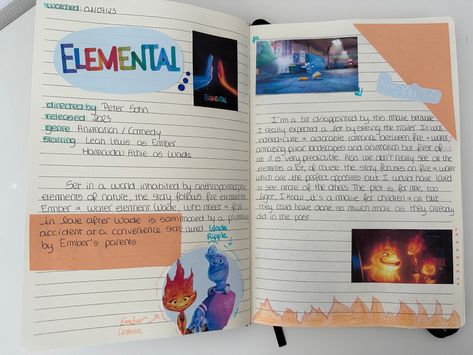 watched: 02/07/23
ELEMENTAL
ELEMENTAL
directed by Peter Sohn
released 2023
genre Animation / Comedy
starring Leah Lewis as Ember
Mamoudou Athie as Wade
Set in a world inhabited by anthropomorphic
elements of nature, the story follows fire elements
Ember & water element Wade, who meet & fall
in love after Wade is summoned by a plumbing
accident at a convenience store owned
by Ember's parents.
Wade
Ripple
Ember
Lumen
Review
I'm a bit disappointed by this movie because
I really expected a lot by seeing the trailer. It was
indeed cute & adorable romance between fire & water,
amazing pixar landscapes and animation but first of
all it is very predictable. Also we don't really see all the
elements a lot, of cause the story focuses on fire & water
which are the perfect opposites but I would have loved
to see more of the others. The plot is, for me, too
light, I know it's a movie for children & all but
they could have done so much more as they already
did in the past.